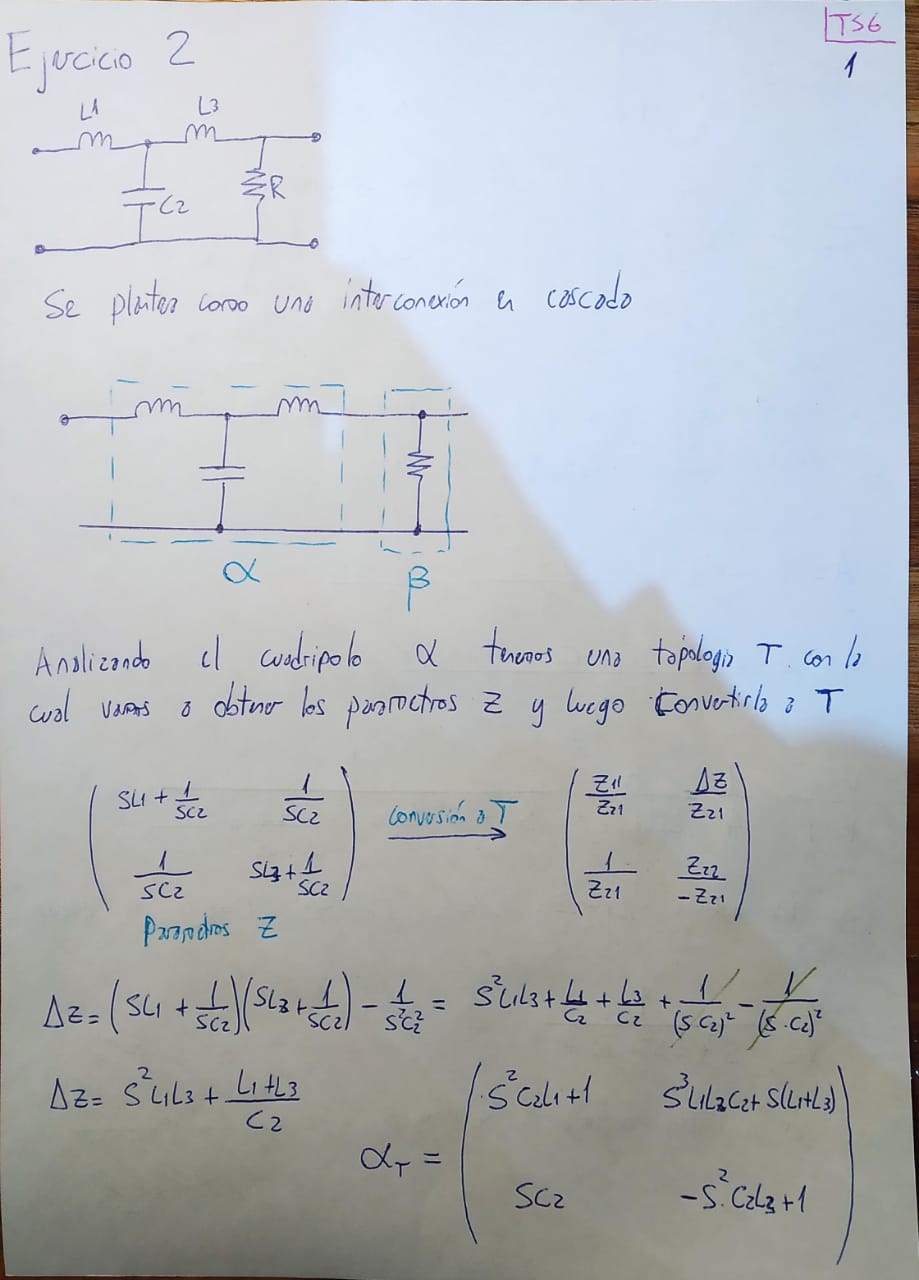 TS6
1
Ejercicio 2
L1 L3
C2 R
Se plantea como una interconexión en cascada
α β
Analizando el cuadripolo α tenemos una topologia T con lo
cual vamos a obtener los parametros Z y luego convertirla a T
( SL1 + 1/SC2    1/SC2 ) Conversión a T ( Z11/Z21    ΔZ/Z21 )
( 1/SC2    SL3 + 1/SC2 ) ( 1/Z21    Z22/-Z21 )
Parametros Z
ΔZ = (SL1 + 1/SC2)(SL3 + 1/SC2) - 1/S²C2² = S²L1L3 + L1/C2 + L3/C2 + 1/(S·C2)² - 1/(S·C2)²
ΔZ = S²L1L3 + (L1+L3)/C2
αT = ( S²C2L1+1    S³L1L3C2+S(L1+L3) )
( SC2    -S²·C2L3+1 )